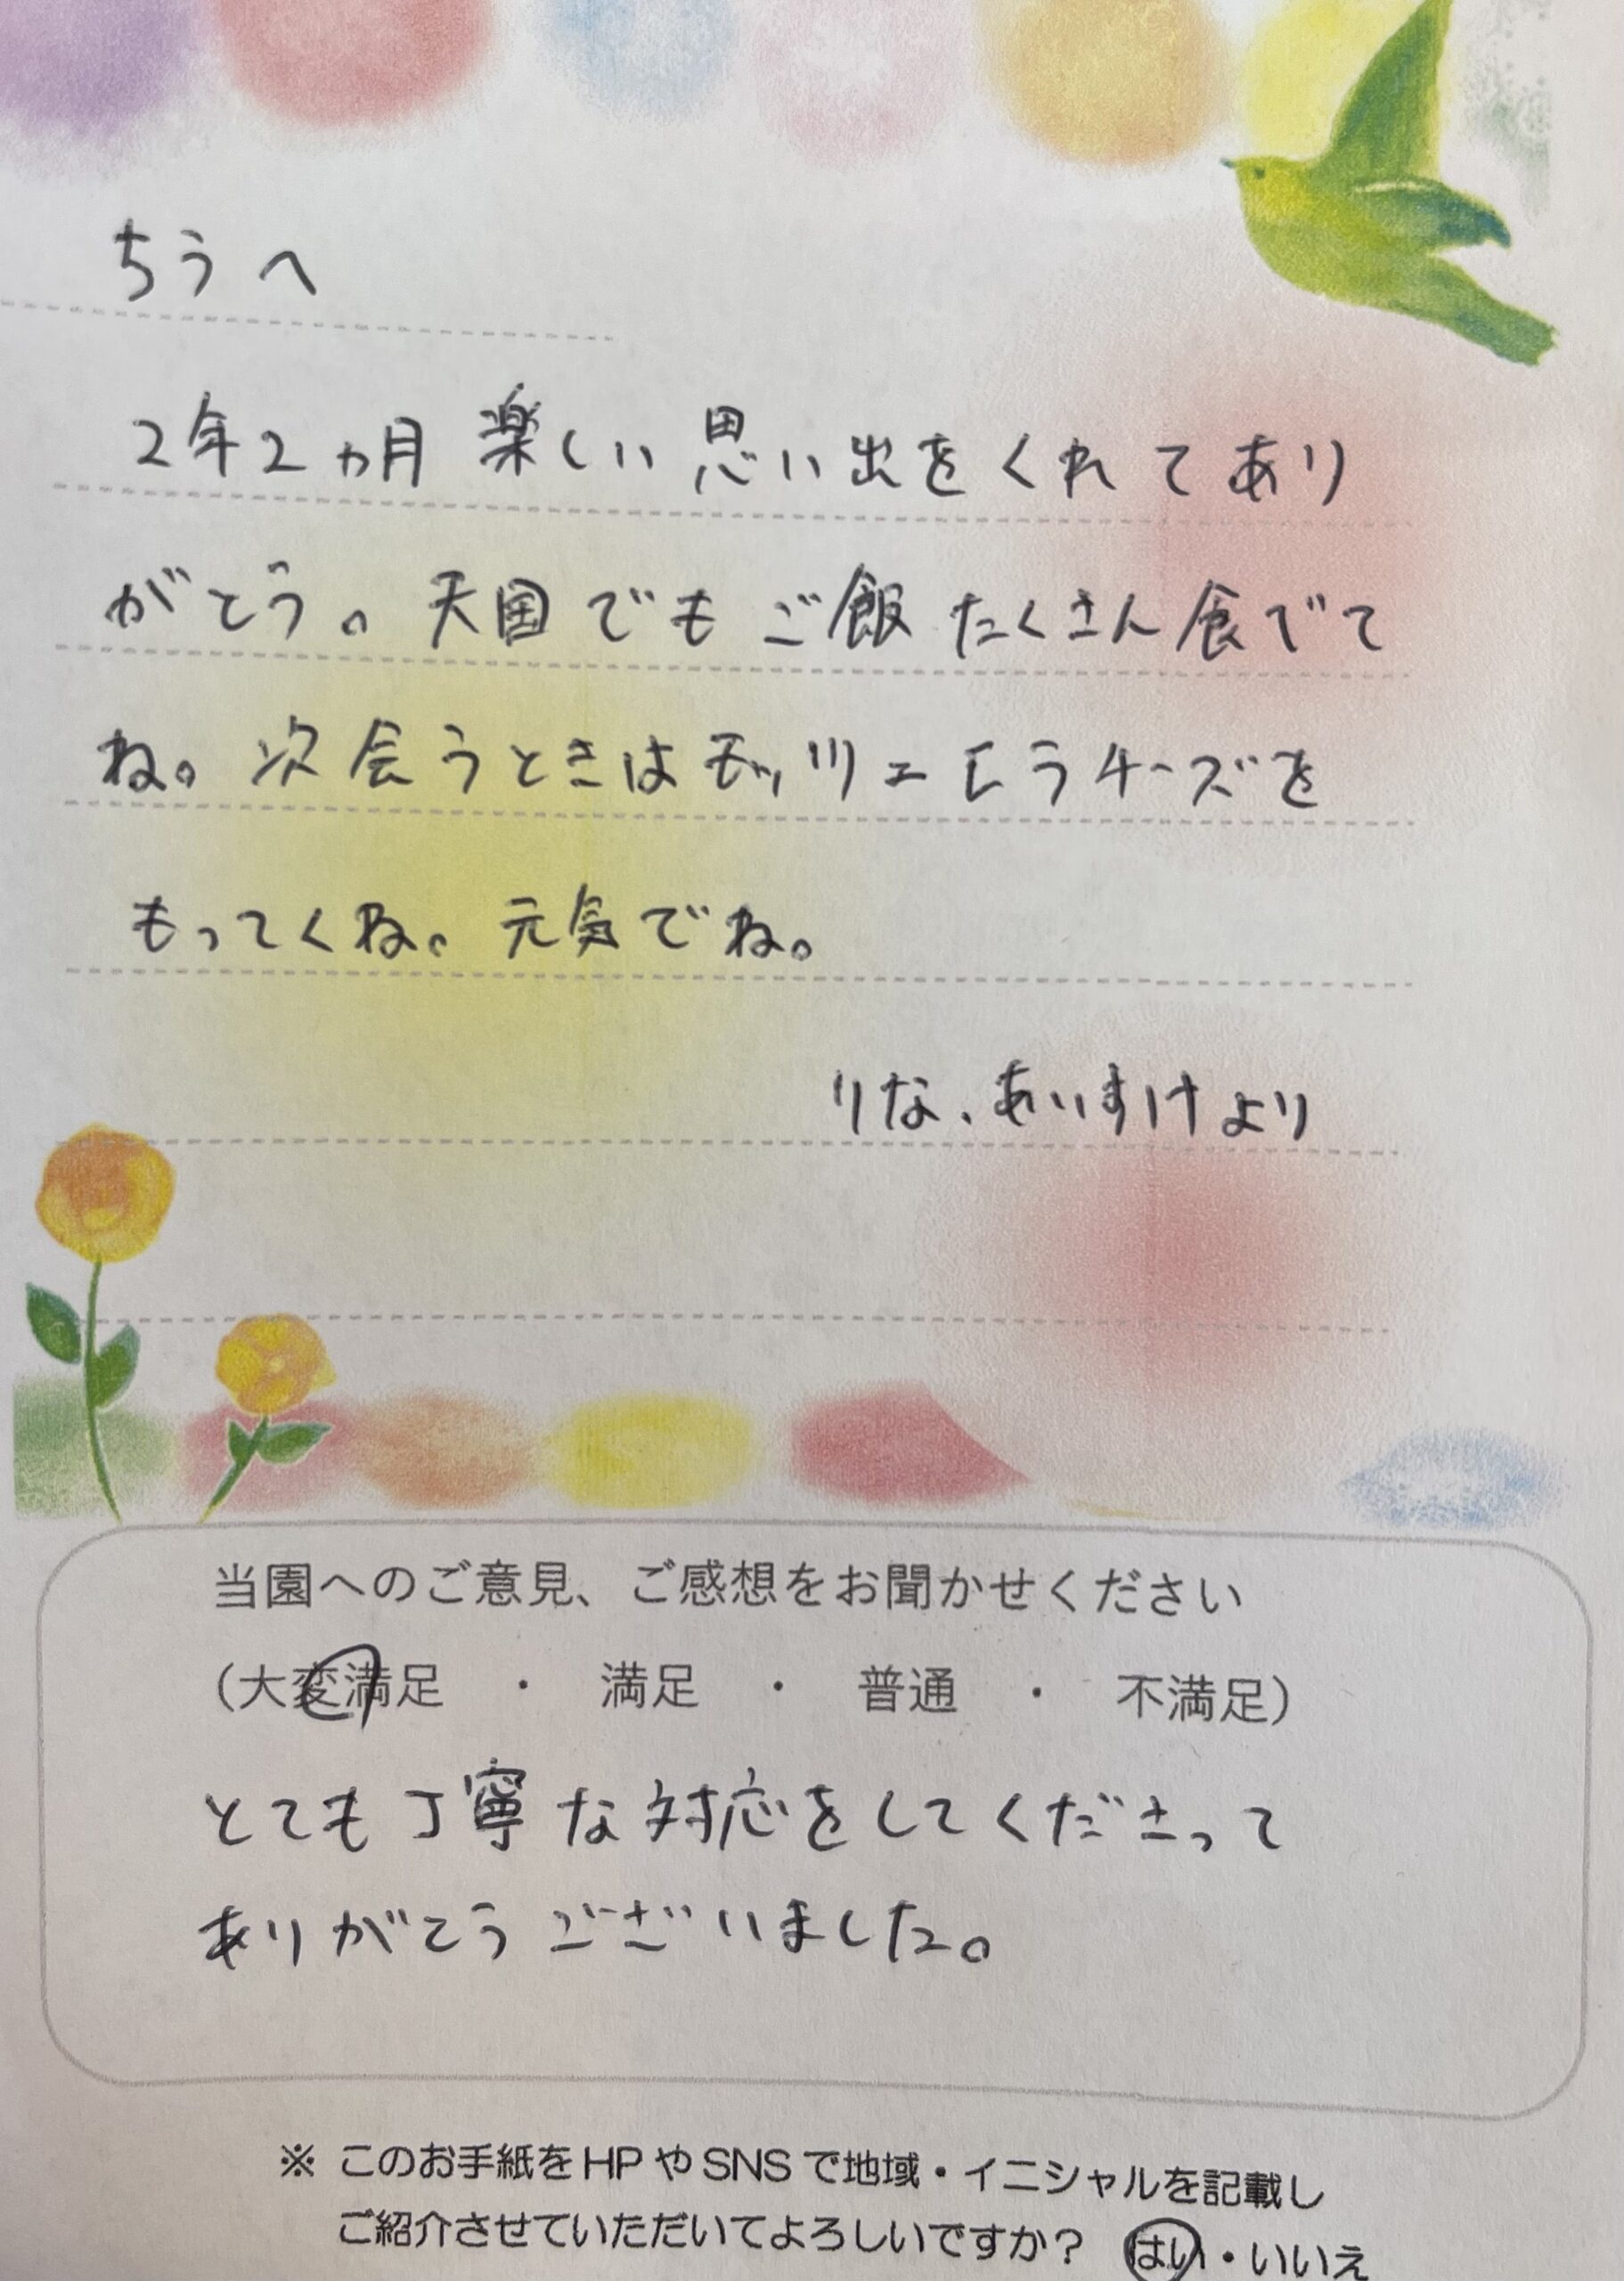 ちうへ
2年2ヵ月 楽しい思い出をくれてあり
がとう。天国でもご飯たくさん食べて
ね。次会うときはモッツァレラチーズを
もってくね。元気でね。
りな、あいすけより
当園へのご意見、ご感想をお聞かせください
(大変満足 ・ 満足 ・ 普通 ・ 不満足)
とても丁寧な対応をしてくださって
ありがとうございました。
※ このお手紙をHPやSNSで地域・イニシャルを記載し
ご紹介させていただいてよろしいですか? はい・いいえ